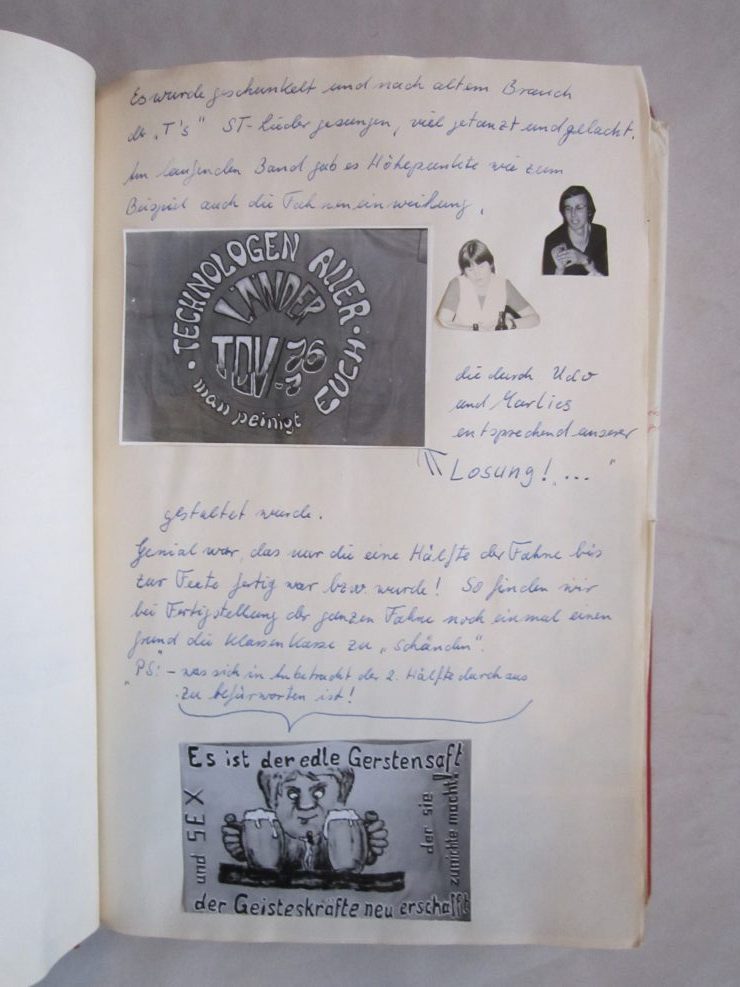 Es wurde geschunkelt und nach altem Brauch
der „T's" ST-Lieder gesungen, viel getanzt und gelacht.
Am laufenden Band gab es Höhepunkte wie zum
Beispiel auch die Fahneneinweihung,
· TECHNOLOGEN ALLER ·
LÄNDER
TDV 76
man peinigt EUCH
die durch Udo
und Marlies
entsprechend unserer
Losung! ..."
gestaltet wurde.
Genial war, das nur die eine Hälfte der Fahne bis
zur Feete fertig war bzw wurde! So finden wir
bei Fertigstellung der ganzen Fahne noch einmal einen
grund die Klassenkasse zu „schänden".
"PS:" - was sich in Anbetracht der 2. Hälfte durchaus
zu befürworten ist!
Es ist der edle Gerstensaft
und SEX
der sie
zunichte macht!
der Geisteskräfte neu erschafft